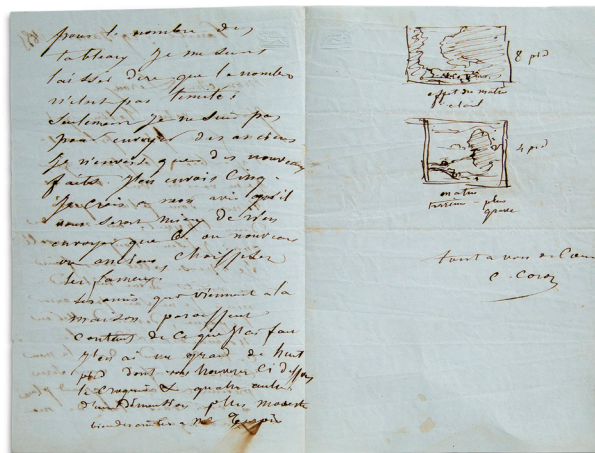 pour le nombre des
tableaux je me suis
laissé dire que le nombre
n'etait pas limité
seulement je ne suis pas
pour envoyer des anciens
je n'envois que des nouveaux
faits. J'en envois cinq.
Je crois a mon avis qu'il
vous seront mieux de n'en
envoyer que ou nouveaux
ou anciens, choisissez
les fameux.
les amis qui viennent a la
maison paraissent
contents de ce que j'ai fait
j'en ai un grand de huit
pied dont vous trouverez ci dessous
le croquis & quatre autres
d'une dimention plus modeste
8 pied
effet du matin
clair
4 pied
matin
terrein - plus
grave
tout a vous de Coeur
C. Corot